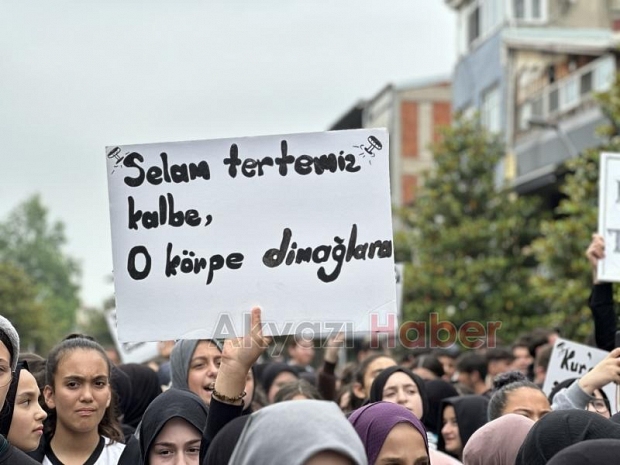 Selam tertemiz
kalbe,
O körpe dimağlara
Akyazı Haber